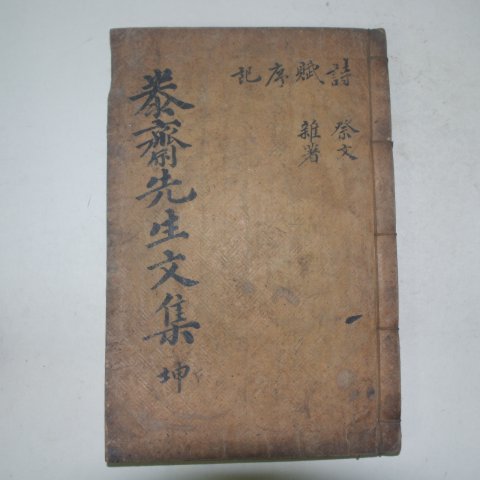 詩 賦 序 記
祭文 雜著
泰齋先生文集 坤